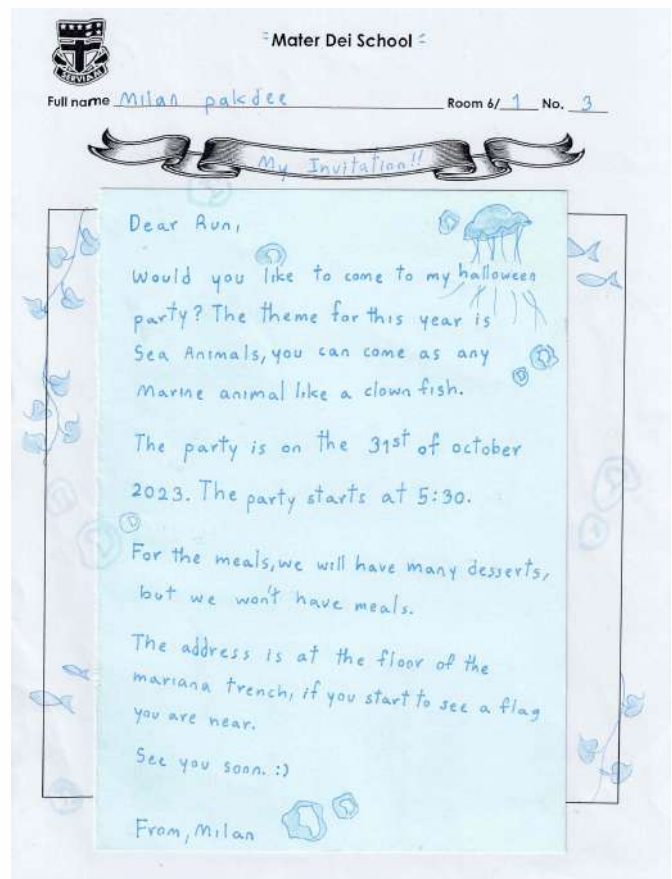 SERVIAM
Mater Dei School
Full name Milan pakdee Room 6/ 1 No. 3
My Invitation!!
Dear Run,
Would you like to come to my halloween
party? The theme for this year is
Sea Animals, you can come as any
Marine animal like a clown fish.
The party is on the 31st of october
2023. The party starts at 5:30.
For the meals, we will have many desserts,
but we won't have meals.
The address is at the floor of the
mariana trench, if you start to see a flag
you are near.
See you soon. :)
From, Milan